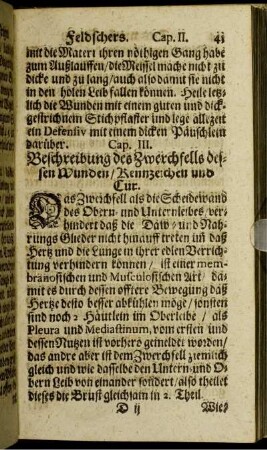 Feldschers. Cap. II. 43
mit die Materi ihren nöthigen Gang habe
zum Außlauffen / die Meissel mache nicht zu
dicke und zu lang / auch also damit sie nicht
in den holen Leib fallen können. Heile letz-
lich die Wunden mit einem guten und dick-
gestrichnem Stichpflaster und lege allezeit
ein Defensiv mit einem dicken Päuschlein
darüber. Cap. III.
Beschreibung des Zwerchfells des-
sen Wunden / Kennzeichen und
Cur.
Das Zwerchfell als die Scheidewand
des Obern- und Unternleibes / ver-
hindert daß die Däw- und Nah-
rungs Glieder nicht hinauff treten uñ daß
Hertz und die Lunge in ihrer edlen Verrich-
tung verhindern können / ist einer mem-
branosischen und Musculosischen Art / da-
mit es durch dessen offtere Bewegung daß
Hertze desto besser abkühlen möge / sonsten
sind noch 2 Häutlein im Oberleibe / als
Pleura und Mediastinum, vom ersten und
dessen Nutzen ist vorhero gemeldet worden /
das andre aber ist dem Zwerchfell ziemlich
gleich und wie dasselbe den Untern- und O-
bern Leib von einander sondert / also theilet
dieses die Brust gleichsam in 2. Theil
D ij Wie